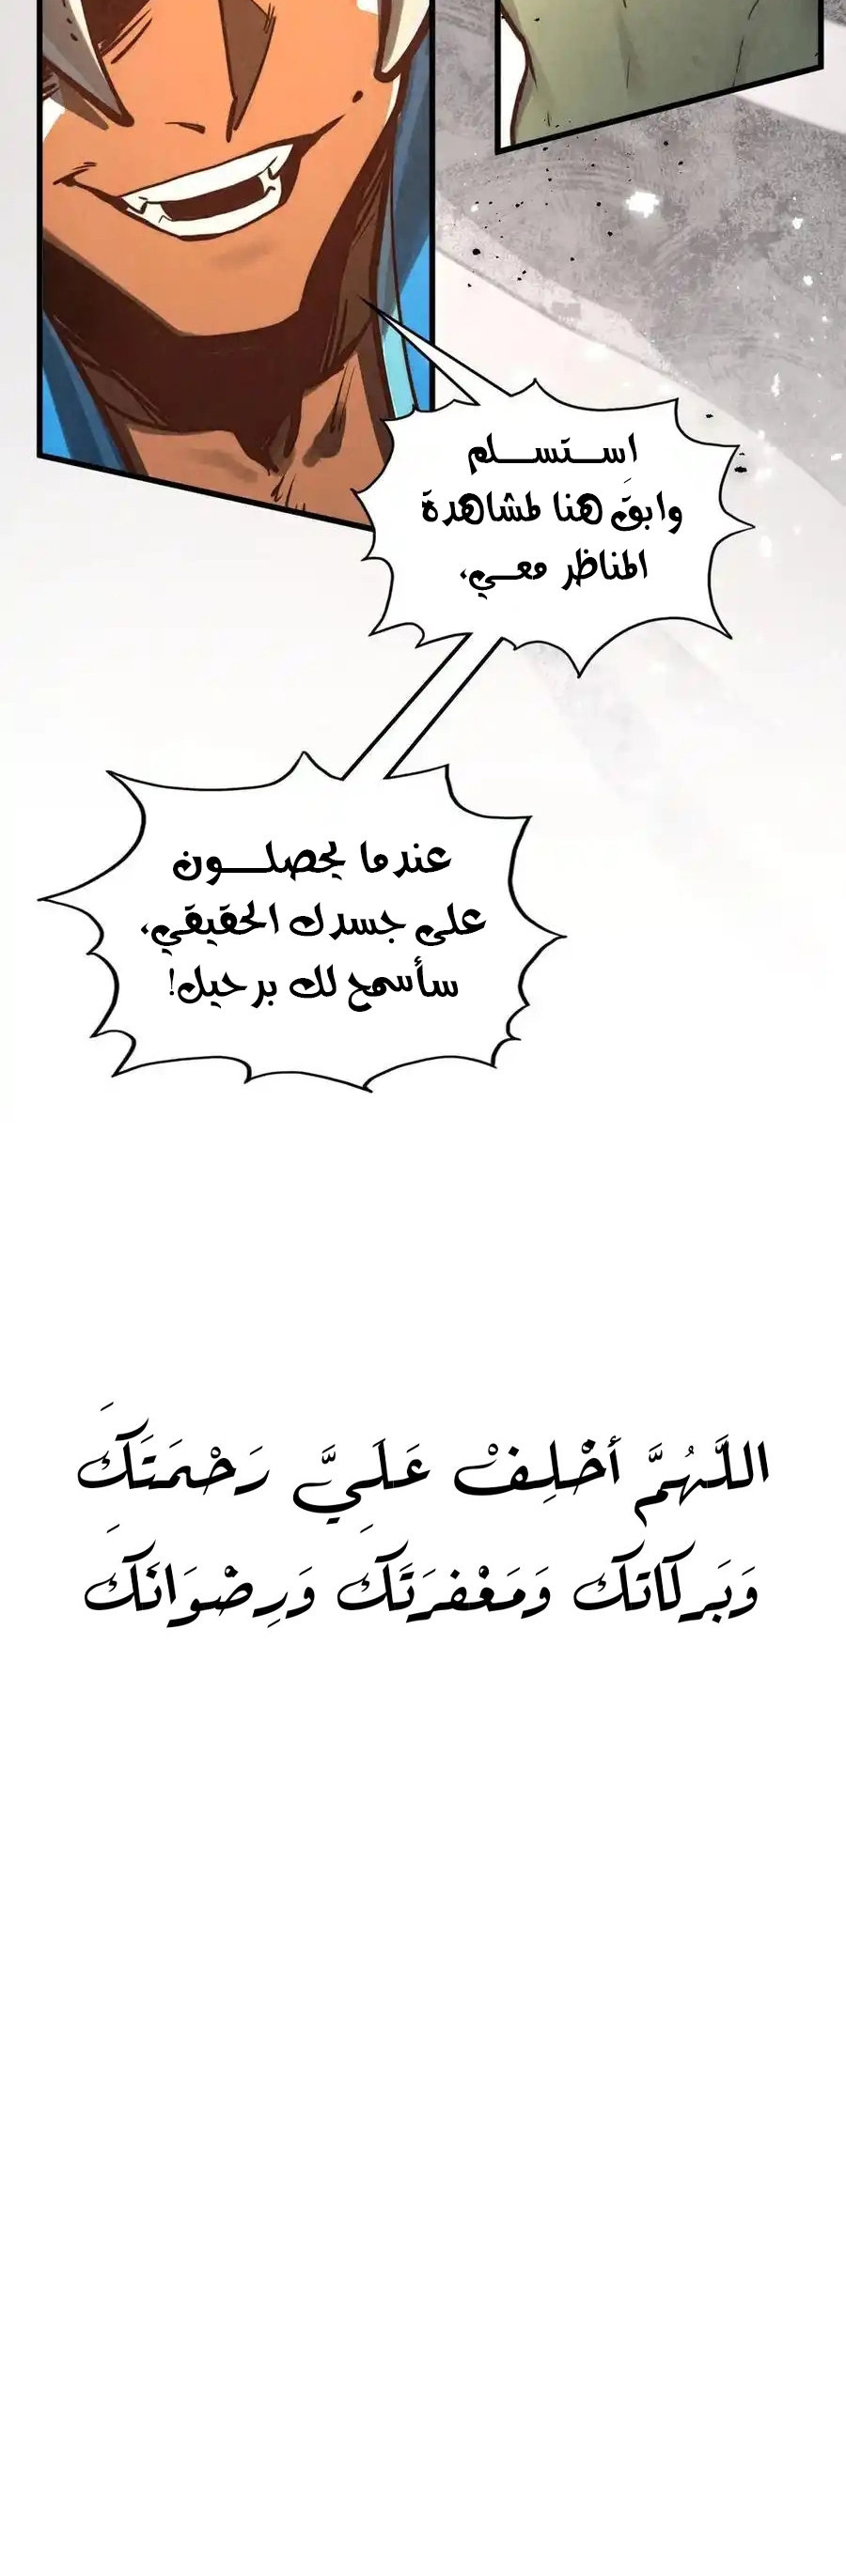 استسلم
وابقَ هنا لمشاهدة
المناظر معي،
عندما يحصلون
على جسدك الحقيقي،
سأسمح لك برحيل!
اللَّهُمَّ أخْلِفْ عَلَيَّ رَحْمَتَكَ
وَبَركاتك وَمَغْفرَتَكَ وَرِضْوَانَكَ